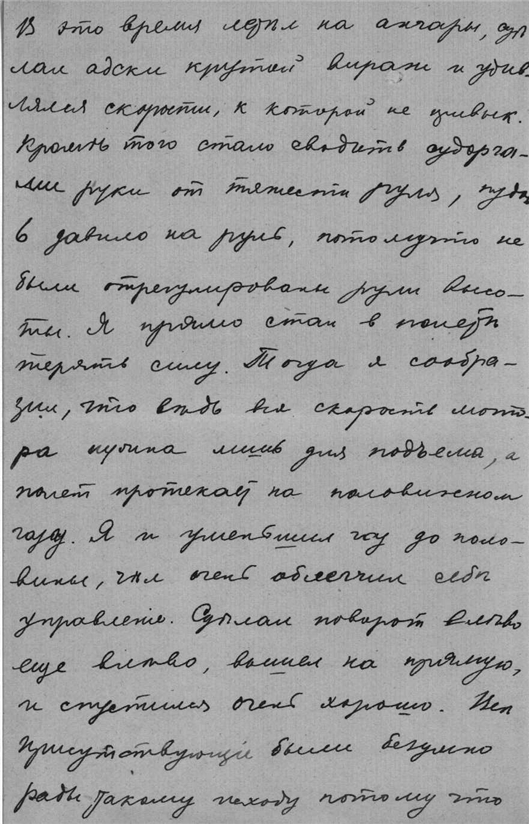 В это время летѣл на ангары, сдѣ-
лал адски крутой вираж и удив-
лялся скорости, к которой не привык.
Кромѣ того стало сводить судорга-
ми руки от тяжести руля,
давило на руль, потомучто не
были отрегулированы рули высо-
ты. Я прямо стал в полетѣ
терять силу. Тогда я сообра-
зил, что вѣдь вся скорость мото-
ра нужна лишь для подъема, а
полет протекает на половинном
газу. Я и уменьшил газ до поло-
вины, чѣм очень облегчил себѣ
управление. Сдѣлал поворот влѣво
еще влѣво, вышел на прямую,
и спустился очень хорошо. Всѣ
присутствующіе были безумно
рады такому исходу потому что